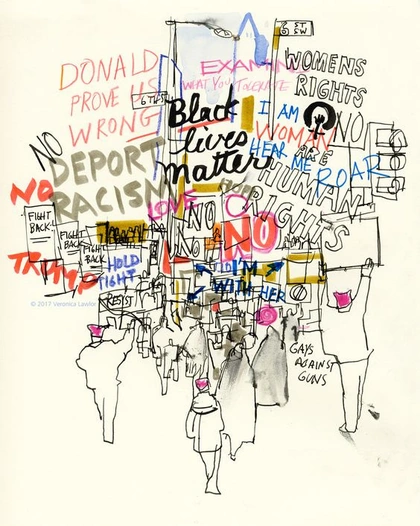 6 ST. SW
DONALD
PROVE US
WRONG
EXAMINE
WHAT YOU TOLERATE
WOMENS
RIGHTS
ARE
HUMAN
RIGHTS
6TH ST
Black
lives
matter
I AM
WOMAN
HEAR ME
ROAR
NO
NO
DEPORT
RACISM
NO
TRUMP
LOVE
NO
NO
NO
FIGHT
BACK!
FIGHT
BACK!
FIGHT
BACK!
HOLD
TIGHT
I'M
WITH HER
RESIST
© 2017 Veronica Lawlor
GAYS
AGAINST
GUNS